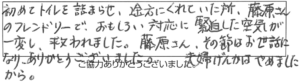 初めてトイレを詰まらせ、途方にくれていた所、藤原さん
のフレンドリーで、おもしろい対応に緊迫した空気が
一変し、救われました。藤原さん、その節はお世話に
なり、ありがとうございました。夫婦げんかはやめました
から。